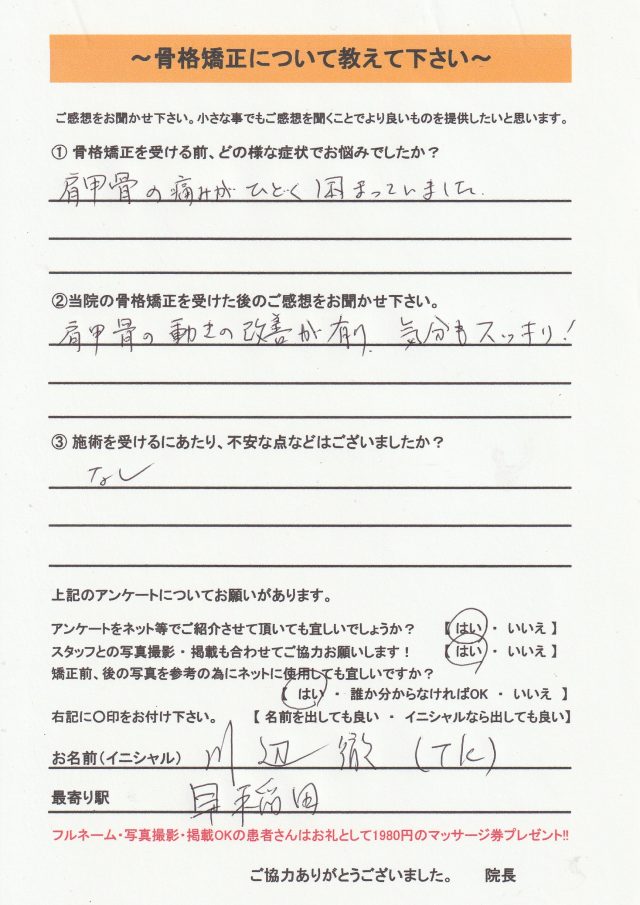 ～骨格矯正について教えて下さい～
ご感想をお聞かせ下さい。小さな事でもご感想を聞くことでより良いものを提供したいと思います。
① 骨格矯正を受ける前、どの様な症状でお悩みでしたか？
肩甲骨の痛みがひどく困まっていました.
②当院の骨格矯正を受けた後のご感想をお聞かせ下さい。
肩甲骨の動きの改善が有り、気分もスッキリ！
③ 施術を受けるにあたり、不安な点などはございましたか？
なし
上記のアンケートについてお願いがあります。
アンケートをネット等でご紹介させて頂いても宜しいでしょうか？ 【 はい ・ いいえ 】
スタッフとの写真撮影・掲載も合わせてご協力お願いします！ 【 はい ・ いいえ 】
矯正前、後の写真を参考の為にネットに使用しても宜しいですか？
【 はい ・ 誰か分からなければOK ・ いいえ 】
右記に〇印をお付け下さい。 【 名前を出しても良い ・ イニシャルなら出しても良い】
お名前（イニシャル） 川辺 徹 (TK)
最寄り駅 早稲田
フルネーム・写真撮影・掲載OKの患者さんはお礼として1980円のマッサージ券プレゼント!!
ご協力ありがとうございました。 院長